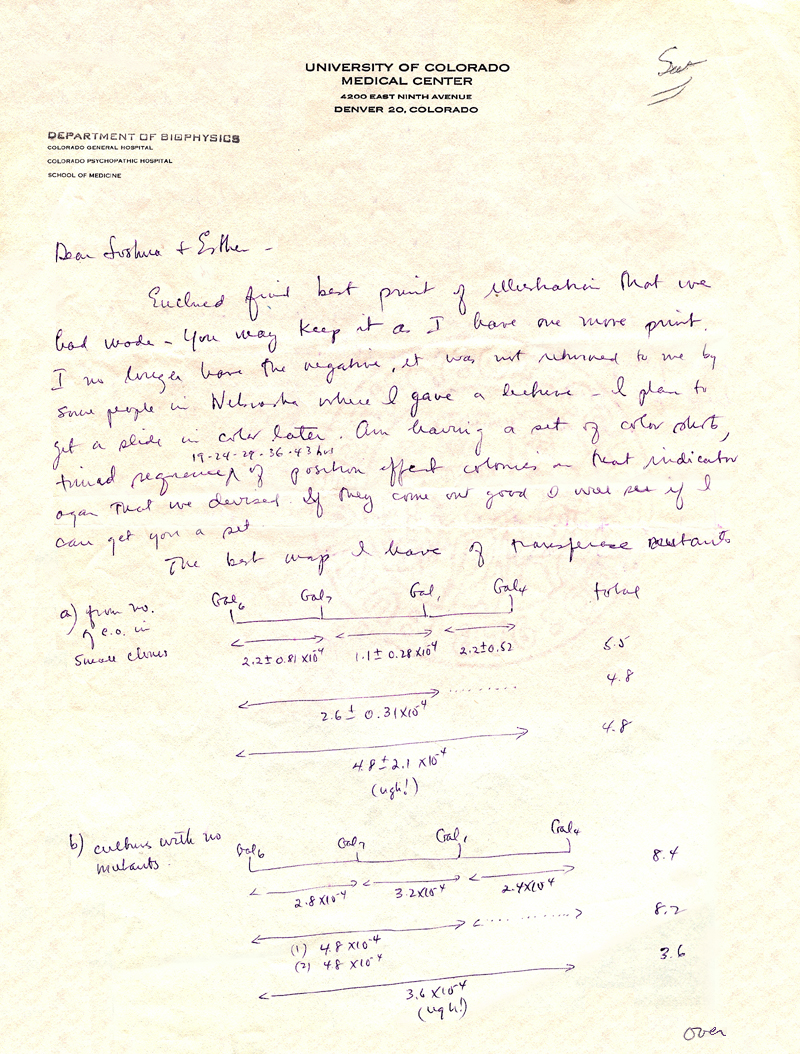 UNIVERSITY OF COLORADO
MEDICAL CENTER
4200 EAST NINTH AVENUE
DENVER 20, COLORADO
DEPARTMENT OF BIOPHYSICS
COLORADO GENERAL HOSPITAL
COLORADO PSYCHOPATHIC HOSPITAL
SCHOOL OF MEDICINE
Dear Joshua + Esther -
Enclosed find best print of illustration that we
had made - You may keep it as I have one more print.
I no longer have the negative, it was not returned to me by
some people in Nebraska where I gave a lecture - I plan to
get a slide in color later. Am having a set of color shots,
19-24-29-36-43 hrs
timed sequence of position effect colonies on that indicator
agar that we devised. If they come out good I will see if I
can get you a set.
The best map I have of transferase mutants
Gal6 Gal7 Gal1 Gal4 total
a) from no.
of c.o. in
small clones
2.2 ± 0.81 x 10-4 1.1 ± 0.28 x 10-4 2.2 ± 0.52 5.5
4.8
2.6 ± 0.31 x 10-4
4.8
4.8 ± 2.1 x 10-4
(ugh!)
b) cultures with no
mutants.
Gal6 Gal7 Gal1 Gal4
8.4
2.8 x 10-4 3.2 x 10-4 2.4 x 10-4
8.2
(1) 4.8 x 10-4
(2) 4.8 x 10-4
3.6
3.6 x 10-4
(ugh!)
over